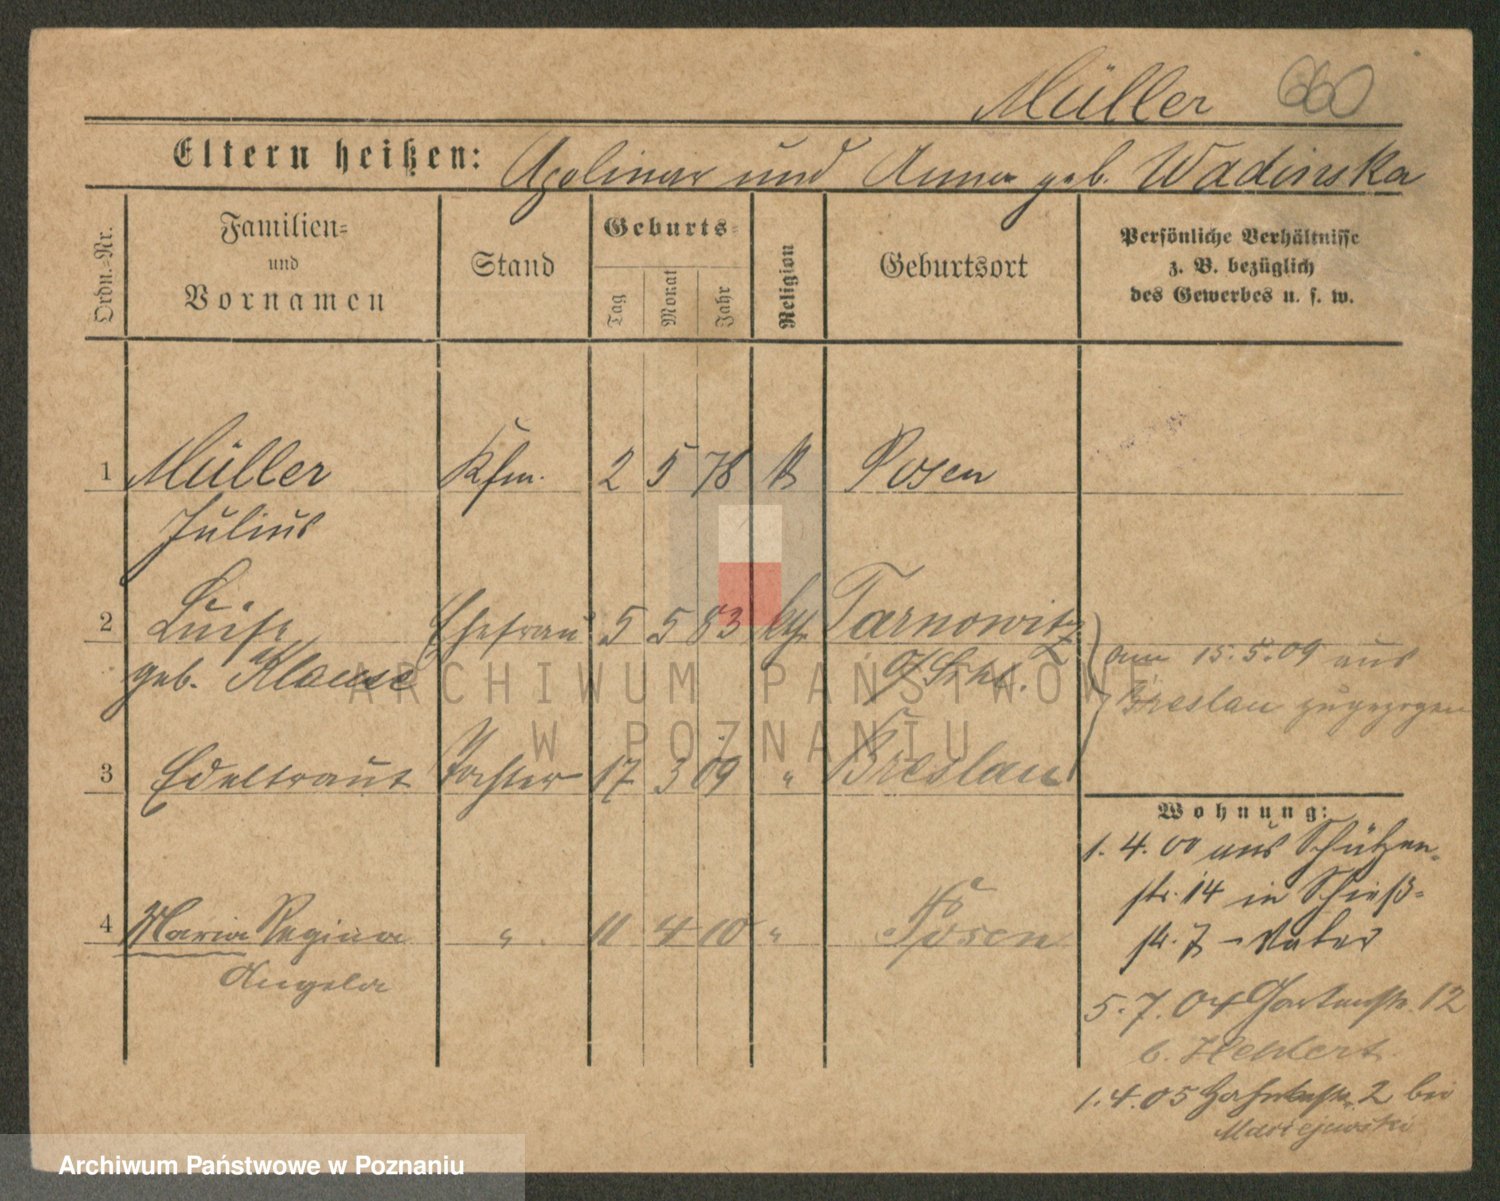 Müller 660
Eltern heißen: Apolinar und Anna geb. Wadinska
Ordn.-Nr.
Familien-
und
Vornamen
Stand
Geburts-
Tag
Monat
Jahr
Religion
Geburtsort
Persönliche Verhältnisse
z. B. bezüglich
des Gewerbes u. s. w.
1 Müller Kfm. 2 5 78 Posen
Julius
2 Luise Ehefrau 5 5 83 kth Tarnowitz
geb. Klause O/Schl.
am 15.5.09 aus
Breslau zugezogen
3 Edeltraut Tochter 17 3 09 " Breslau
4 Maria Regina " 11 4 10 " Posen
Angela
Wohnung:
1.4.00 aus Schützen-
str. 14 in Schieß-
str. 7 – Vater
5.7.04 Gartenstr. 12
b.
1.4.05 2 bei
Maciejewski
ARCHIWUM PAŃSTWOWE
W POZNANIU
Archiwum Państwowe w Poznaniu